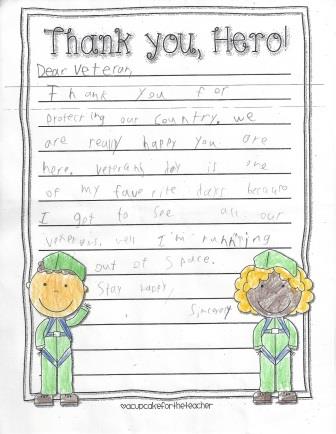 Thank you, Hero!
Dear Veteran,
Thank you for
protecting our country. we
are really happy you are
here. veterans day is one
of my favorite days because
I get to see all our
veterans. well I'm running
out of space.
Stay happy,
Sincerely
©acupcakefortheteacher